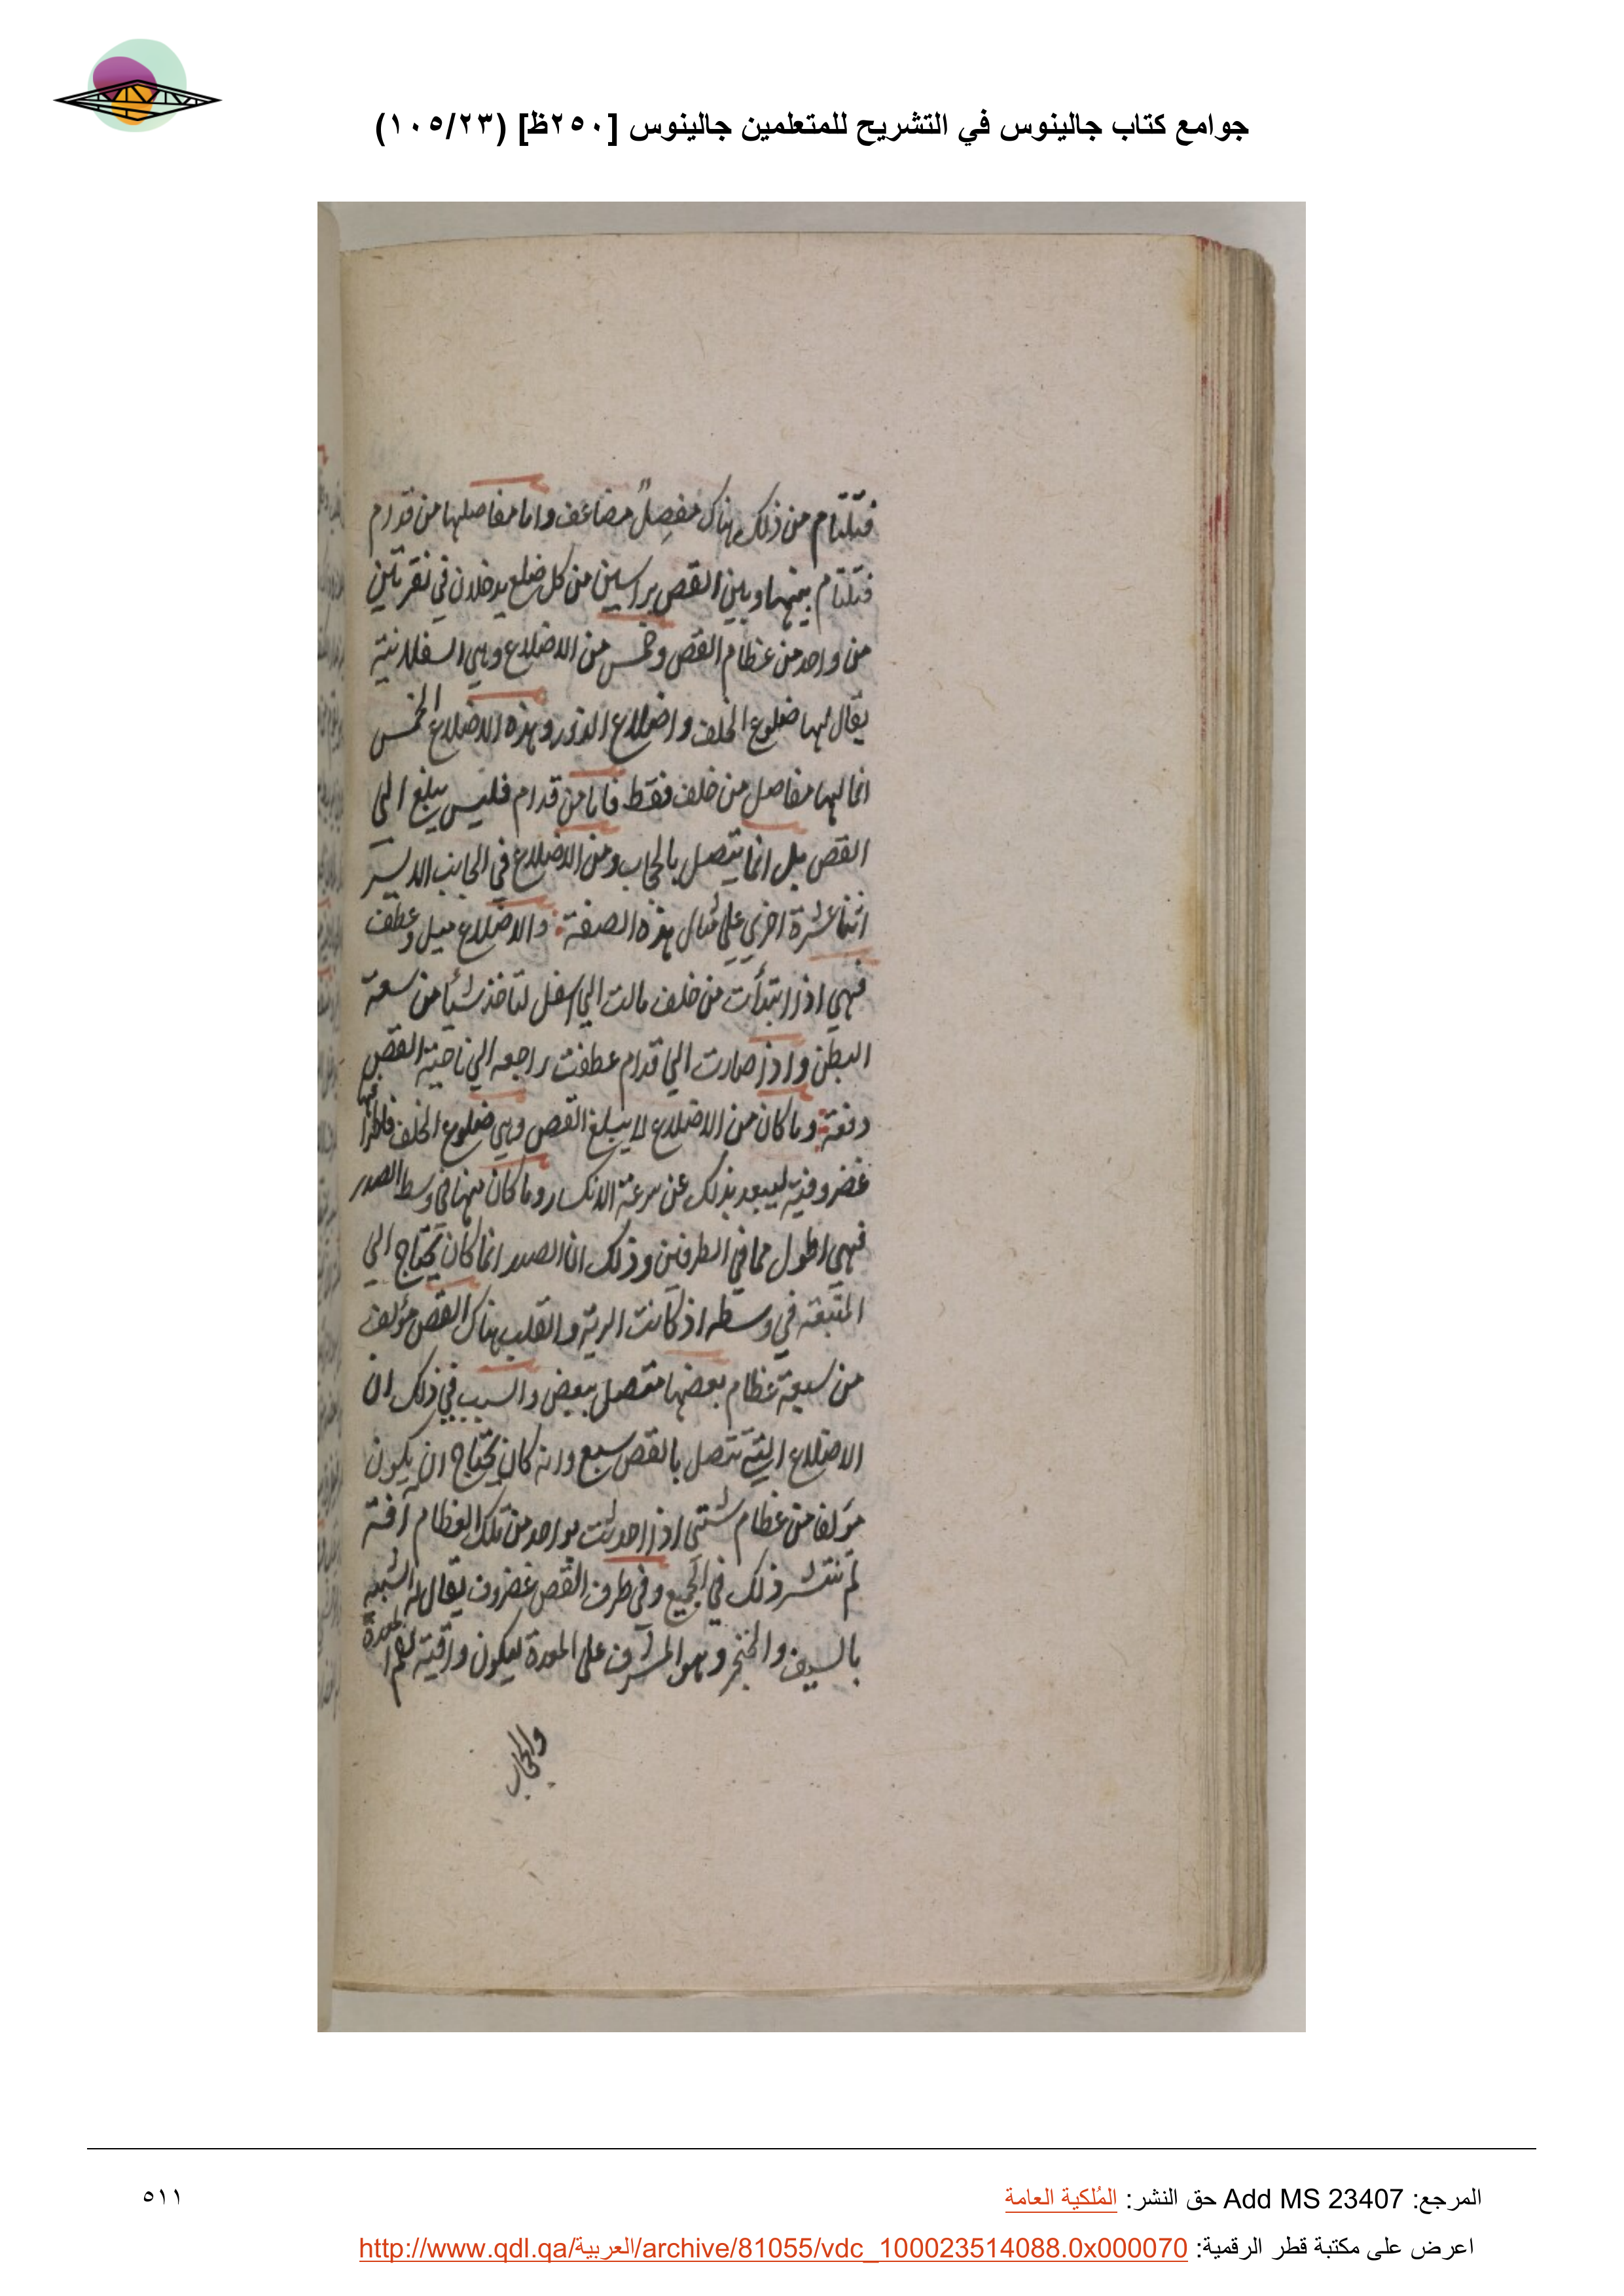 جوامع كتاب جالينوس في التشريح للمتعلمين جالينوس [٢٥٠ظ] (١٠٥/٢٣)
فتلتام من ذلك هناك مفصل مضاعف واما مفاصلها من قدام
فتلتام بينها وبين القص براسين من كل ضلع يدخلان في نقرتين
من واحد من عظام القص وخمس من الاضلاع وهي السفلانية
يقال لها ضلوع الخلف واضلاع الزور وهذه الاضلاع الخمس
انما لها مفاصل من خلف فقط فاما من قدام فليس يبلغ الي
القص بل انما يتصل بالحجاب ومن الاضلاع في الجانب الايسر
اثنتا عشرة اخري علي مثال هذه الصفة والاضلاع ميل وعطف
فهي اذا ابتدأت من خلف مالت الي اسفل لتاخذ شيأ من سعة
البطن واذا صارت الي قدام عطفت راجعه الي ناحية القص
دفعة وما كان من الاضلاع لا يبلغ القص وهي ضلوع الخلف فاطرافها
غضروفية ليبعد بذلك عن سرعة الانكسار وما كان منها في وسط الصدر
فهي اطول مما في الطرفين وذلك ان الصدر انما كان يحتاج الي
في وسطه اذ كانت الرية والقلب هناك القص مؤلف
من سبعة عظام بعضها متصل ببعض والسبب في ذلك ان
الاضلاع التي تتصل بالقص سبع وانه كان يحتاج ان يكون
مؤلفا من عظام شتي اذا حدثت بواحد من تلك العظام آفة
لم تنتشر ذلك في الجميع وفي طرف القص غضروف يقال له الشبيه
بالسيف والخنجر وهو المشرف على المعدة ليكون واقية لفم المعدة
والحجاب
المرجع: Add MS 23407 حق النشر: المُلكية العامة
٥١١
اعرض على مكتبة قطر الرقمية: http://www.qdl.qa/العربية/archive/81055/vdc_100023514088.0x000070